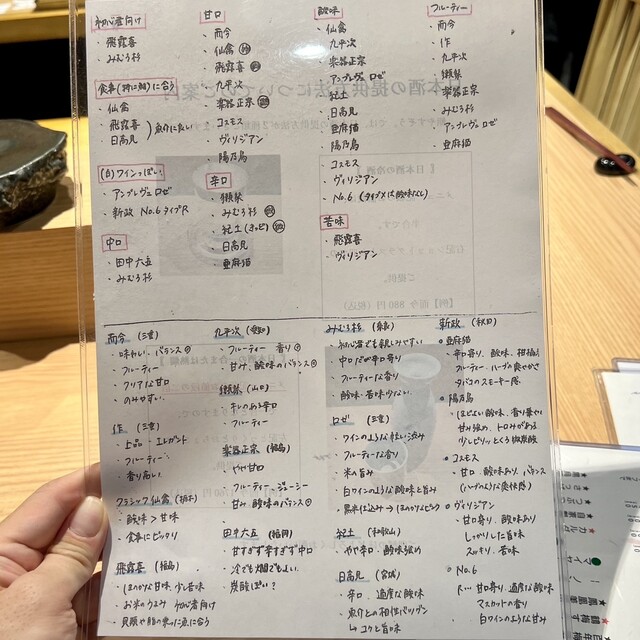 初心者向け
・飛露喜
・みむろ杉
食事(特に鮨)に合う
・仙禽
・飛露喜
・日高見
魚介に良い
(白)ワインっぽい
・アンプレヴェ ロゼ
・新政 No.6 タイプR
中口
・田中六五
・みむろ杉
甘口
・而今
・仙禽
・飛露喜
・九平次
・楽器正宗
・コスモス
・ヴィリジアン
・陽乃鳥
辛口
・獺祭
・みむろ杉
・紀土
・日高見
・亜麻猫
酸味
・仙禽
・九平次
・楽器正宗
・アンプレヴェ ロゼ
・紀土
・日高見
・亜麻猫
・陽乃鳥
・コスモス
・ヴィリジアン
・No.6 (タイプXは酸味なし)
苦味
・飛露喜
・ヴィリジアン
フルーティー
・而今
・作
・九平次
・獺祭
・楽器正宗
・みむろ杉
・アンプレヴェロゼ
・亜麻猫
而今 (三重)
・味わい、バランス◎
・フルーティー
・クリアな甘口
・のみやすい。
作 (三重)
・上品・エレガント
・フルーティー
・香り高い
クラシック仙禽 (栃木)
・酸味>甘味
・食事にピッタリ
飛露喜 (福島)
・ほのかな甘味、少し苦味
・お米のうまみ 初心者向け
・貝類や脂の乗った魚に合う
九平次 (愛知)
・フルーティー 香り◎
・甘み、酸味のバランス◎
獺祭 (山口)
・キレのある辛口
・フルーティー
楽器正宗 (福島)
・やや甘口
・フルーティー・ジューシー
・甘み、酸味のバランス◎
田中六五 (福岡)
・甘すぎず辛すぎず中口
・次でも燗でもよい。
・炭酸ぽい?
みむろ杉 (奈良)
・初心者でも親しみやすい
・中口だが辛口寄り
・フルーティーな香り
・酸味・苦味少ない。
ロゼ (三重)
・ワインのような軽い渋み
・フルーティーな香り
・米の旨み
・白ワインのような酸味と旨み
・黒米仕込み→ほのかなピンク
紀土 (和歌山)
・やや辛口・酸味強め
日高見 (宮城)
・辛口、適度な酸味
・魚介との相性バツグン
→コクと旨味
新政 (秋田)
亜麻猫
・辛口寄り、酸味、柑橘系
フルーティー、ハーブの爽やかさ
タバコのスモーキー感
陽乃鳥
・ほどよい酸味、香り華やか
甘み強め、トロみがある
少しピリッとくる微炭酸
コスモス
・甘口、酸味あり、バランス
(ハーブのような爽快感)
ヴィリジアン
・甘口寄り、酸味あり
しっかりした旨味
スッキリ、苦味
No.6
R… 甘口寄り、適度な酸味
マスカットの香り
白ワインのような甘み